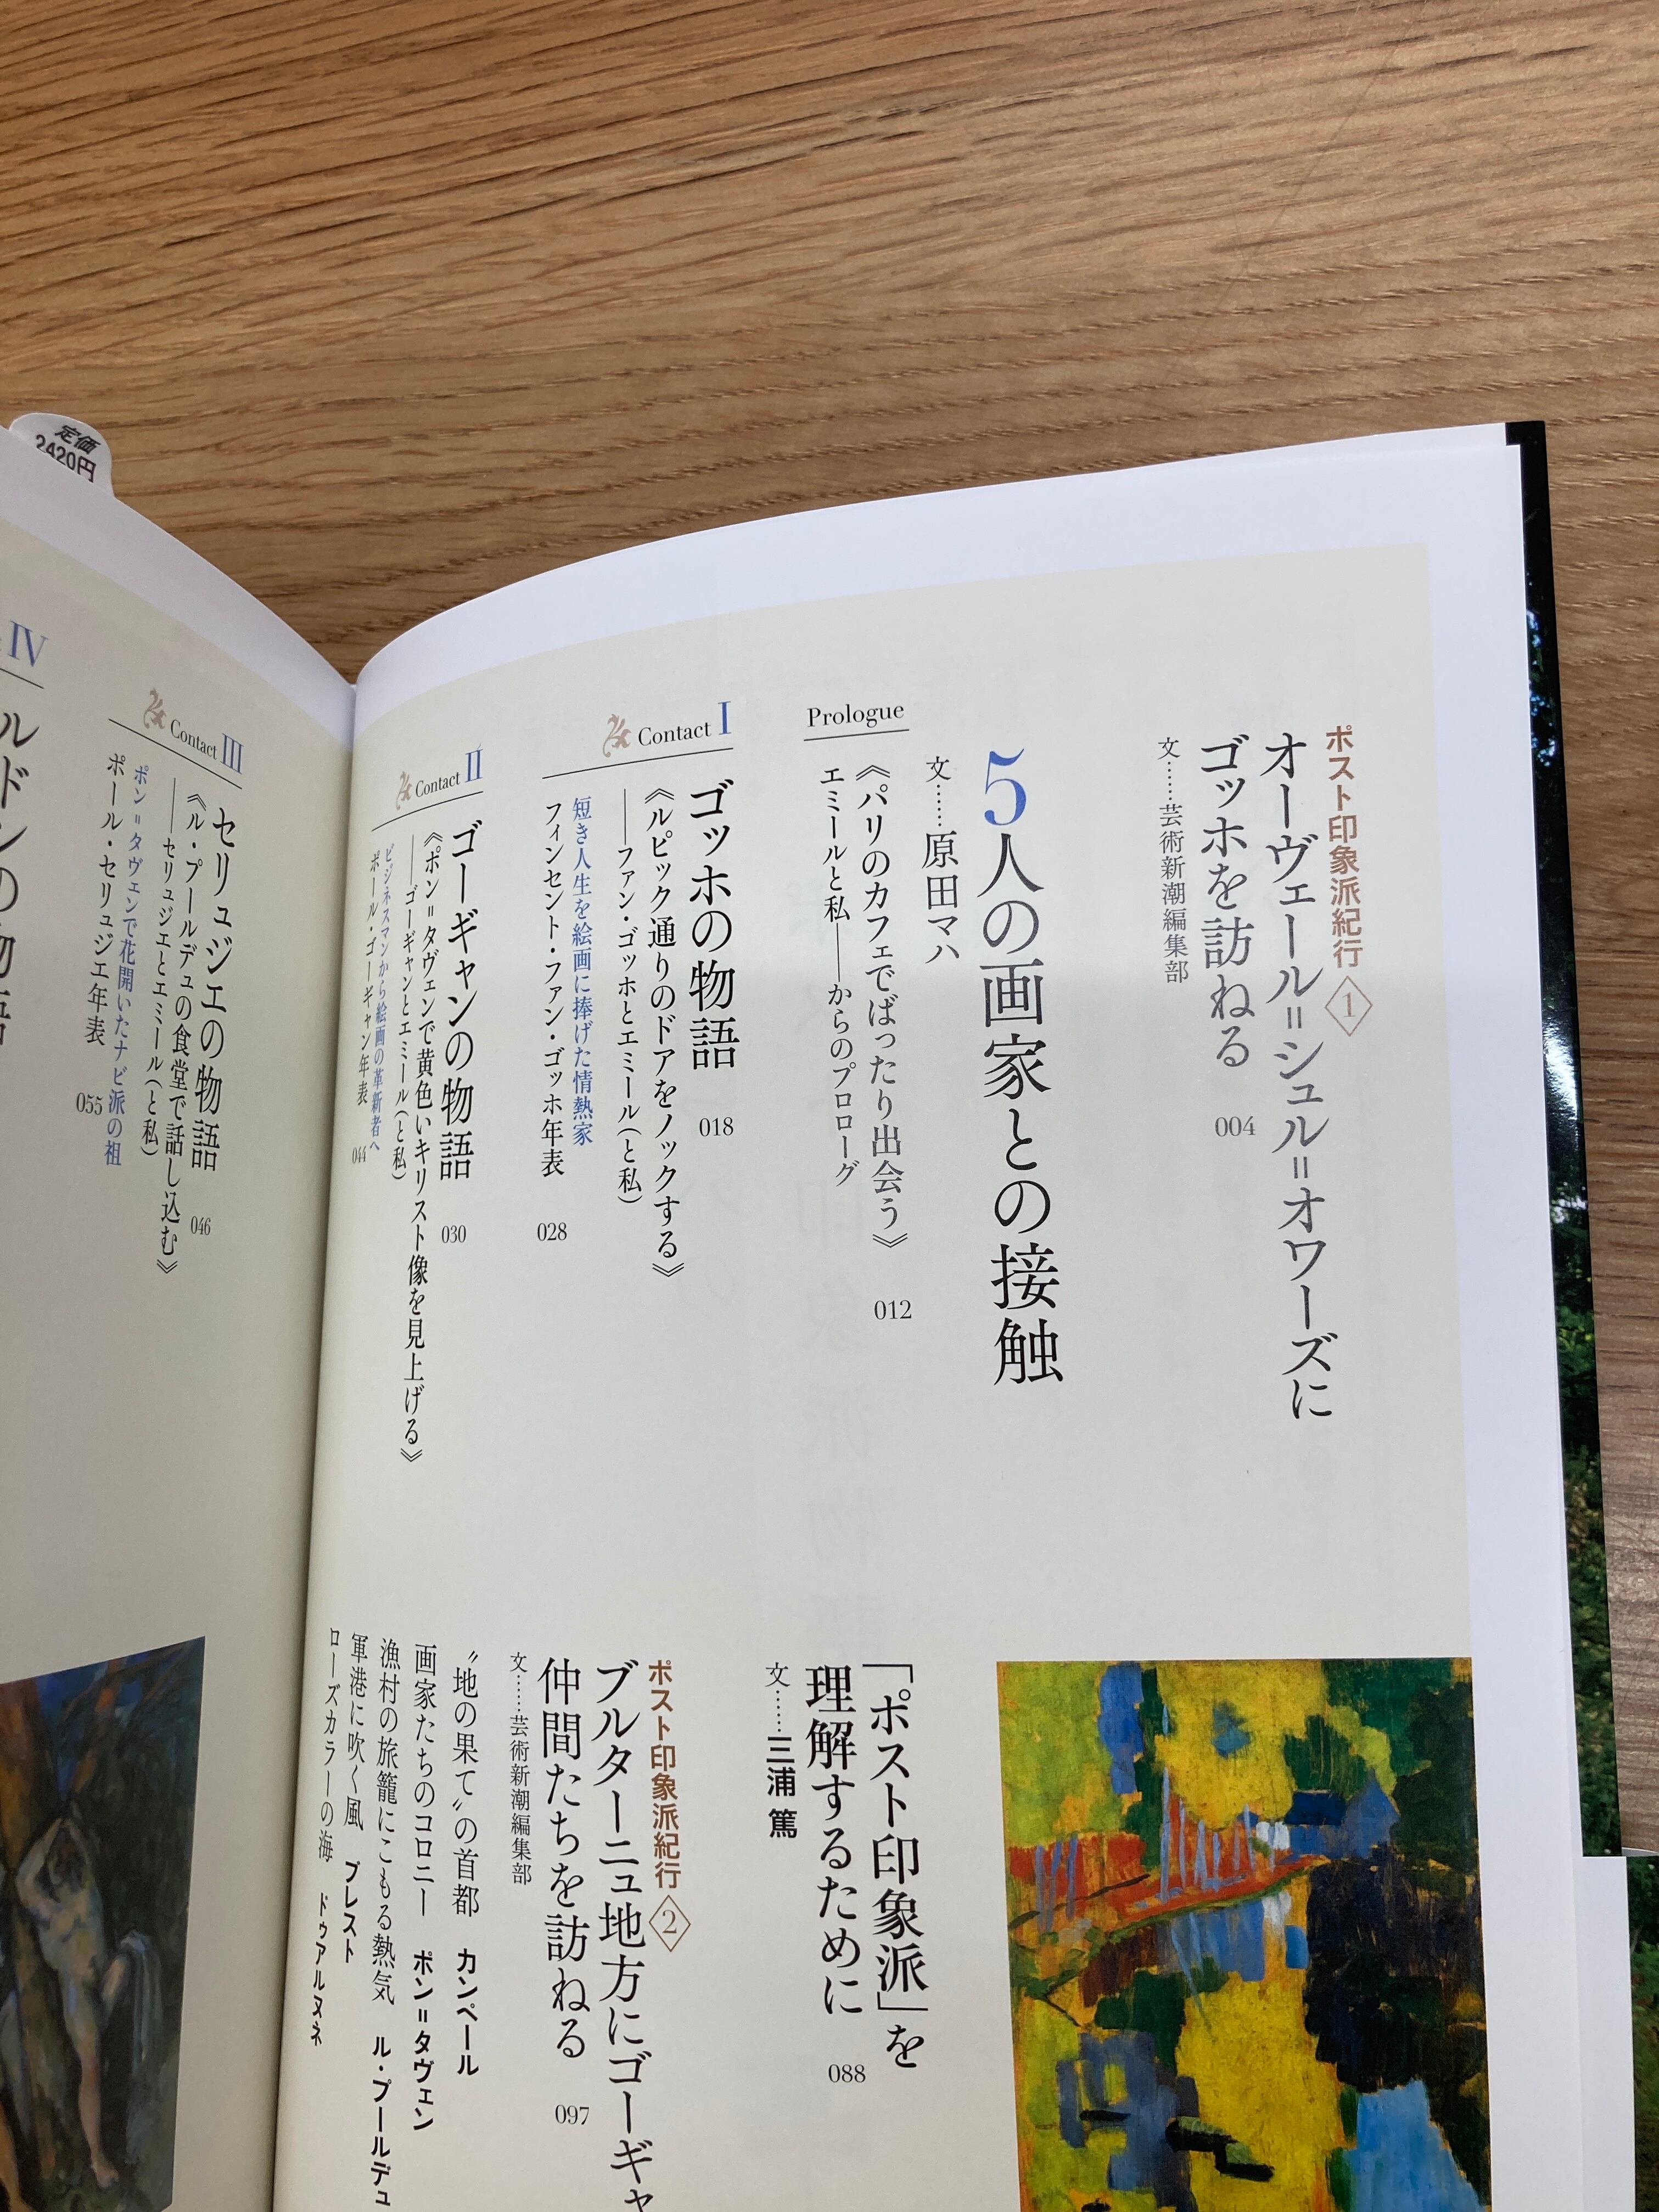 ポスト印象派紀行 1
オーヴェール=シュル=オワーズに
ゴッホを訪ねる 004
文……芸術新潮編集部
5人の画家との接触
文……原田マハ
Prologue
《パリのカフェでばったり出会う》 012
エミールと私――からのプロローグ
Contact I
ゴッホの物語 018
《ルピック通りのドアをノックする》
――ファン・ゴッホとエミール(と私)
短き人生を絵画に捧げた情熱家
フィンセント・ファン・ゴッホ年表 028
Contact II
ゴーギャンの物語 030
《ポン=タヴェンで黄色いキリスト像を見上げる》
――ゴーギャンとエミール(と私)
ビジネスマンから絵画の革新者へ
ポール・ゴーギャン年表 044
「ポスト印象派」を
理解するために 088
文……三浦 篤
ポスト印象派紀行 2
ブルターニュ地方にゴーギャ
仲間たちを訪ねる 097
文……芸術新潮編集部
〝地の果て〟の首都 カンペール
画家たちのコロニー ポン=タヴェン
漁村の旅籠にこもる熱気 ル・プールデュ
軍港に吹く風 ブレスト
ローズカラーの海 ドゥアルヌネ
Contact III
セリュジエの物語 046
《ル・プールデュの食堂で話し込む》
――セリュジエとエミール(と私)
ポン=タヴェンで花開いたナビ派の祖
ポール・セリュジエ年表 055
IV
ルドンの物語
定価
2420円